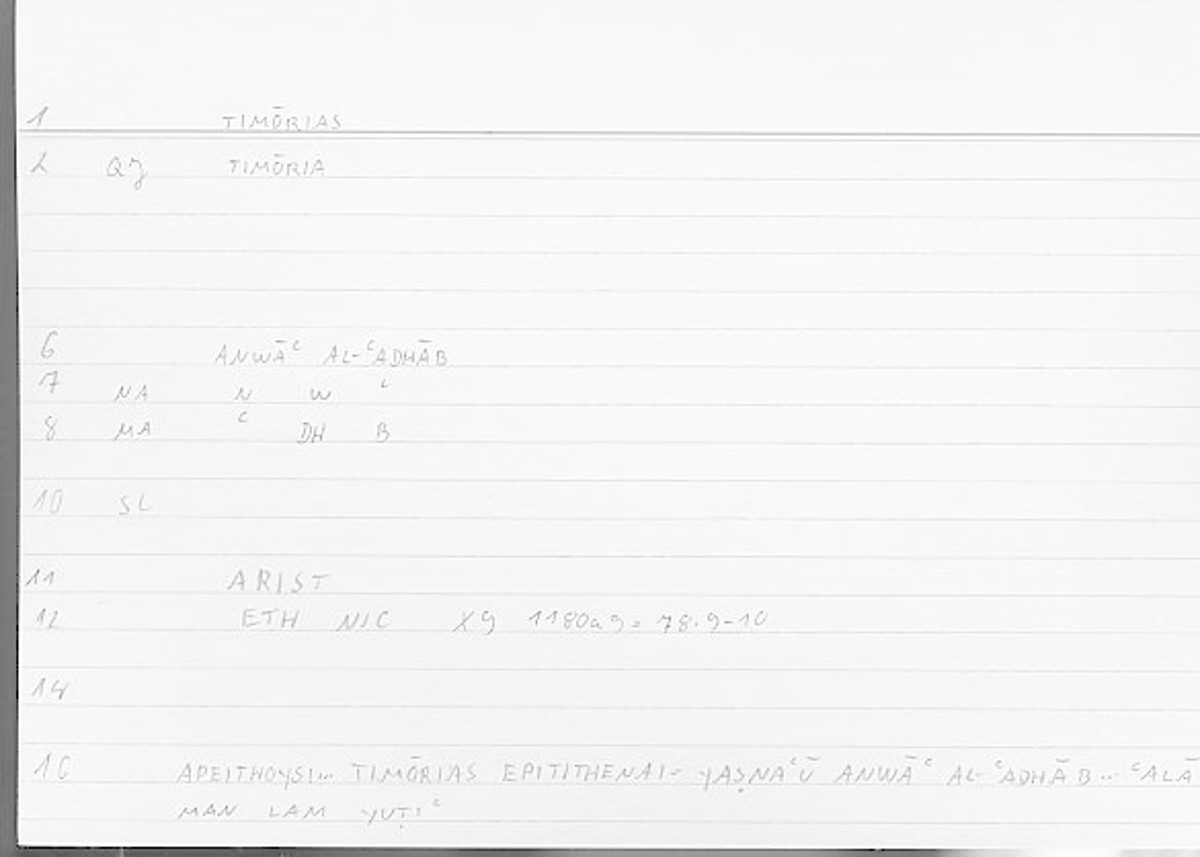 1 TIMŌRIAS
2 QJ TIMŌRIA
6 ANWĀʿ AL-ʿADHĀB
7 NA N W ʿ
8 MA ʿ DH B
10 SL
11 ARIST
12 ETH NIC X9 1180a9 = 78.9-10
14
16 APEITHOYSI... TIMŌRIAS EPITITHENAI- YAṢNAʿŪ ANWĀʿ AL-ʿADHĀB... ʿALĀ
MAN LAM YUṬIʿ